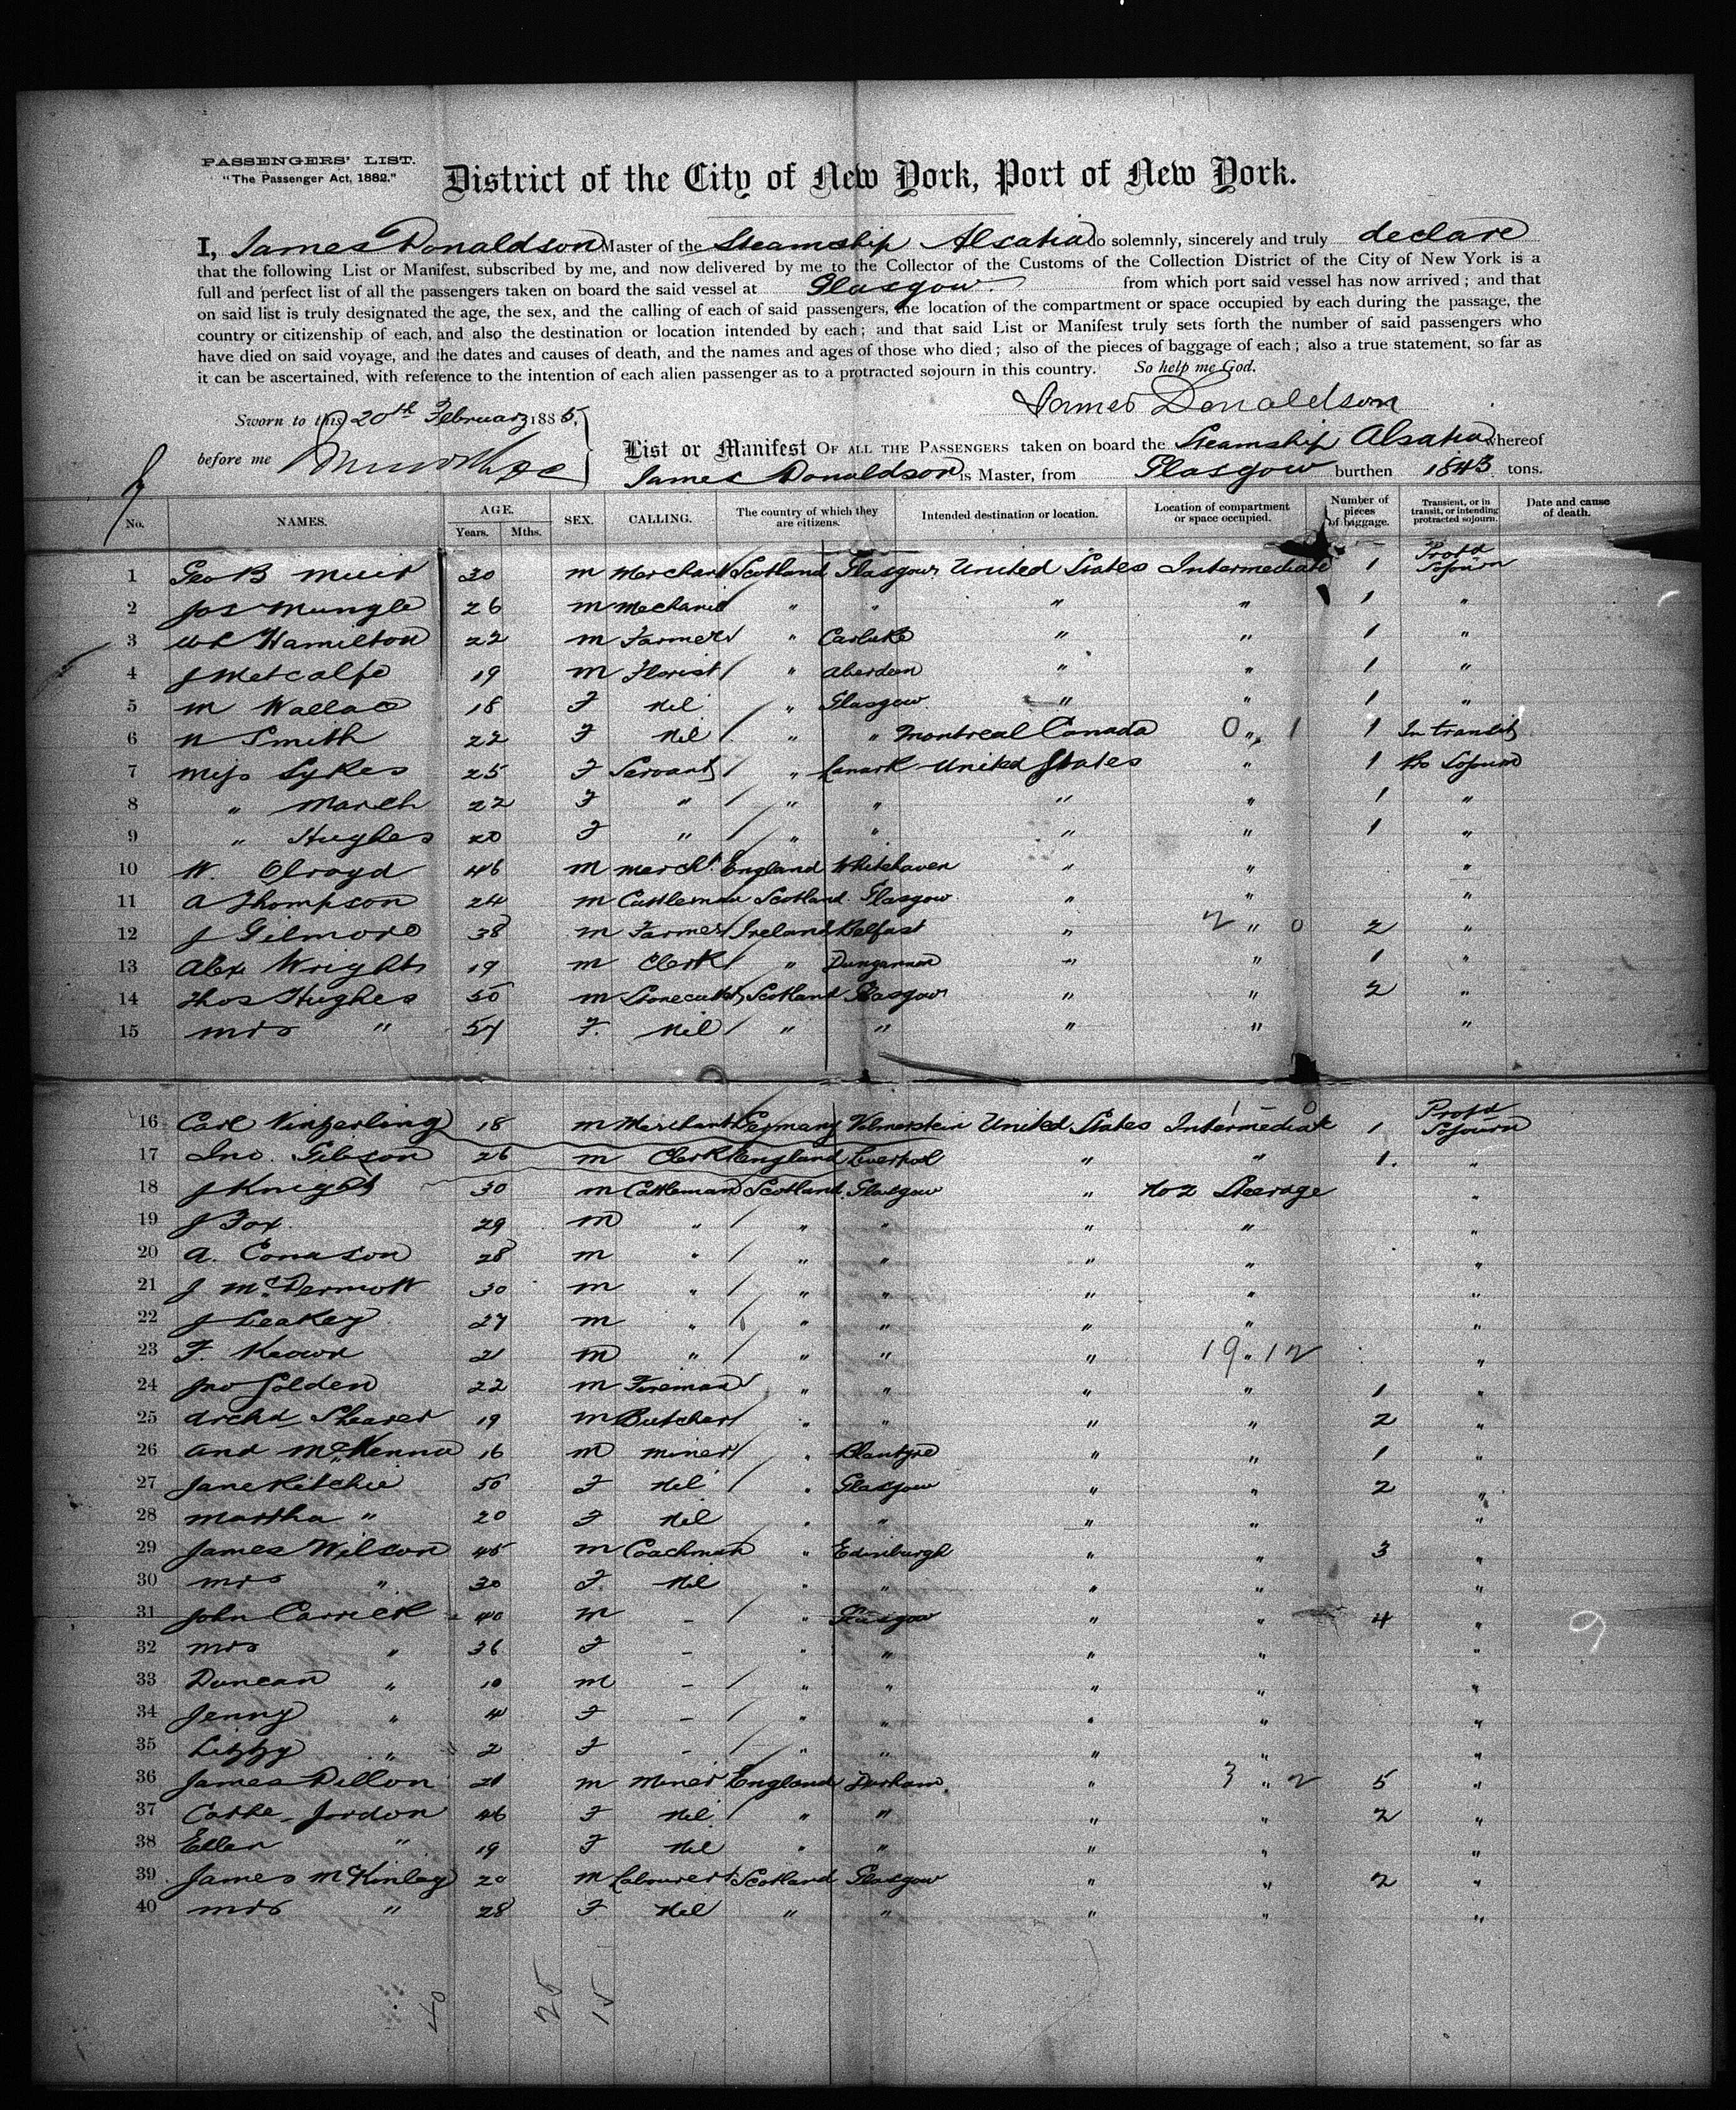 PASSENGERS' LIST.
"The Passenger Act, 1882."
District of the City of New York, Port of New York.
I, James Donaldson Master of the Steamship Alsatia do solemnly, sincerely and truly declare
that the following List or Manifest, subscribed by me, and now delivered by me to the Collector of the Customs of the Collection District of the City of New York is a
full and perfect list of all the passengers taken on board the said vessel at Glasgow from which port said vessel has now arrived; and that
on said list is truly designated the age, the sex, and the calling of each of said passengers, the location of the compartment or space occupied by each during the passage, the
country or citizenship of each, and also the destination or location intended by each; and that said List or Manifest truly sets forth the number of said passengers who
have died on said voyage, and the dates and causes of death, and the names and ages of those who died; also of the pieces of baggage of each; also a true statement, so far as
it can be ascertained, with reference to the intention of each alien passenger as to a protracted sojourn in this country. So help me God.
James Donaldson
Sworn to this 20th February 1885,
before me
List or Manifest OF ALL THE PASSENGERS taken on board the Steamship Alsatia whereof
James Donaldson is Master, from Glasgow burthen 1843 tons.
No. NAMES. AGE. Years. Mths. SEX. CALLING. The country of which they are citizens. Intended destination or location. Location of compartment or space occupied. Number of pieces of baggage. Transient, or in transit, or intending protracted sojourn. Date and cause of death.
1 Geo B Muir 30 m Merchant Scotland Glasgow United States Intermediate 1 Protd Sojourn
2 Jas Mungle 26 m Mechanic " " " " 1 "
3 Hamilton 22 m Farmer " Carluke " " 1 "
4 J Metcalfe 19 m Florist " Aberdeen " " 1 "
5 M Wallace 18 F Nil " Glasgow " " 1 "
6 N Smith 22 F Nil " " Montreal Canada 0 " 1 1 In transit
7 Miss Sykes 25 F Servant " Lanark United States " 1 Pro Sojourn
8 " March 22 F " " " " " 1 "
9 " Hughes 20 F " " " " " 1 "
10 W. Olroyd 46 m Mercht England Whitehaven " " "
11 A Thompson 24 m Cattleman Scotland Glasgow " " "
12 J Gilmore 38 m Farmer Ireland Belfast " 2 " 0 2 "
13 Alex Wright 19 m Clerk " Dungannon " " 1 "
14 Thos Hughes 50 m Stonecutter Scotland Glasgow " " 2 "
15 Mrs " 54 F. Nil " " " " "
16 Carl 18 m Merchant Germany United States Intermediate 1 Protd Sojourn
17 Jno. Gibson 26 m Clerk England Liverpool " " 1. "
18 J Knight 30 m Cattleman Scotland Glasgow " No 2 Steerage "
19 J Fox 29 m " " " " " "
20 A. 28 m " " " " " "
21 J McDermott 30 m " " " " " "
22 J Leakey 27 m " " " " " "
23 F. Keown 21 m " " " " 19 " 12 "
24 Jno Golden 22 m Fireman " " " " 1 "
25 Archd Shearer 19 m Butcher " " " " 2 "
26 And McKenna 16 m Miner " Blantyre " " 1 "
27 Jane Ritchie 50 F Nil " Glasgow " " 2 "
28 Martha " 20 F Nil " " " " "
29 James Wilson 45 m Coachman " Edinburgh " " 3 "
30 Mrs " 30 F. Nil " " " " "
31 John Carrick 40 m - " Glasgow " " 4 "
32 Mrs " 36 F - " " " " "
33 Duncan " 10 m - " " " " "
34 Jenny " 4 F - " " " " "
35 Lizzy " 2 F - " " " " "
36 James Dillon 21 m Miner England Durham " 3 " 2 5 "
37 Cathe Jordon 46 F Nil " " " " 2 "
38 Ellen " 19 F Nil " " " " "
39 James McKinlay 20 m Labourer Scotland Glasgow " " 2 "
40 Mrs " 28 F Nil " " " " "
40 25 15